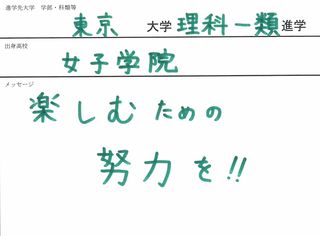 進学先大学　学部・科類等
東京 大学 理科一類 進学
出身高校
女子学院
メッセージ
楽しむための
努力を!!